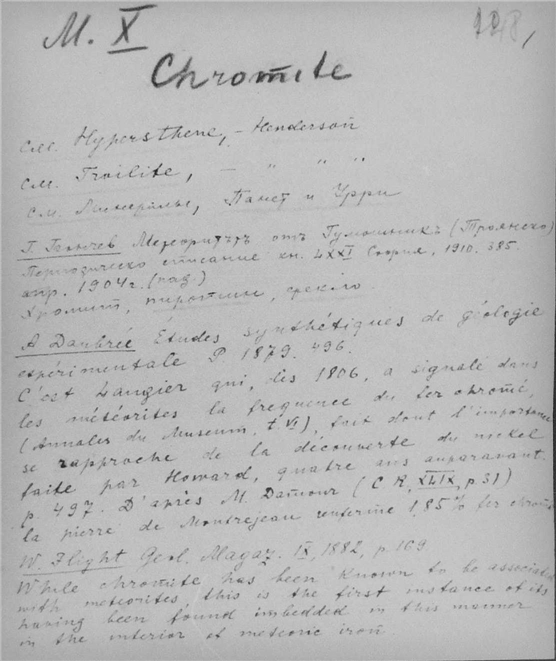 M. X
Chromite
см. Hypersthene, - Henderson
см. Troilite, — " " "
см. Минералы, Панет и Урри
Г. Бончев Метеоритътъ отъ Гумощникъ (Троянско)
Периодическо списание кн. LXXI София, 1910. 385.
апр. 1904 г. (пад.)
Хромит, пиротин, стекло.
A Daubrée Etudes synthétiques de géologie
expérimentale P 1879. 496.
C'est Laugier qui, dès 1806, a signalé dans
les météorites la frequence du fer chromé,
(Annales du Museum. t VI), fait dont l'importance
se rapproche de la découverte du nickel
faite par Howard, quatre ans auparavant.
p. 497. D'après M. Damour (C R, XLIX, p 31)
la pierre de Montrejeau renferme 1,85% fer chromé
W. Flight Geol. Magaz. IX, 1882, p. 109
While chromite has been known to be associat.
with meteorites this is the first instance of its
having been found imbedded in this manner
in the interior of meteoric iron